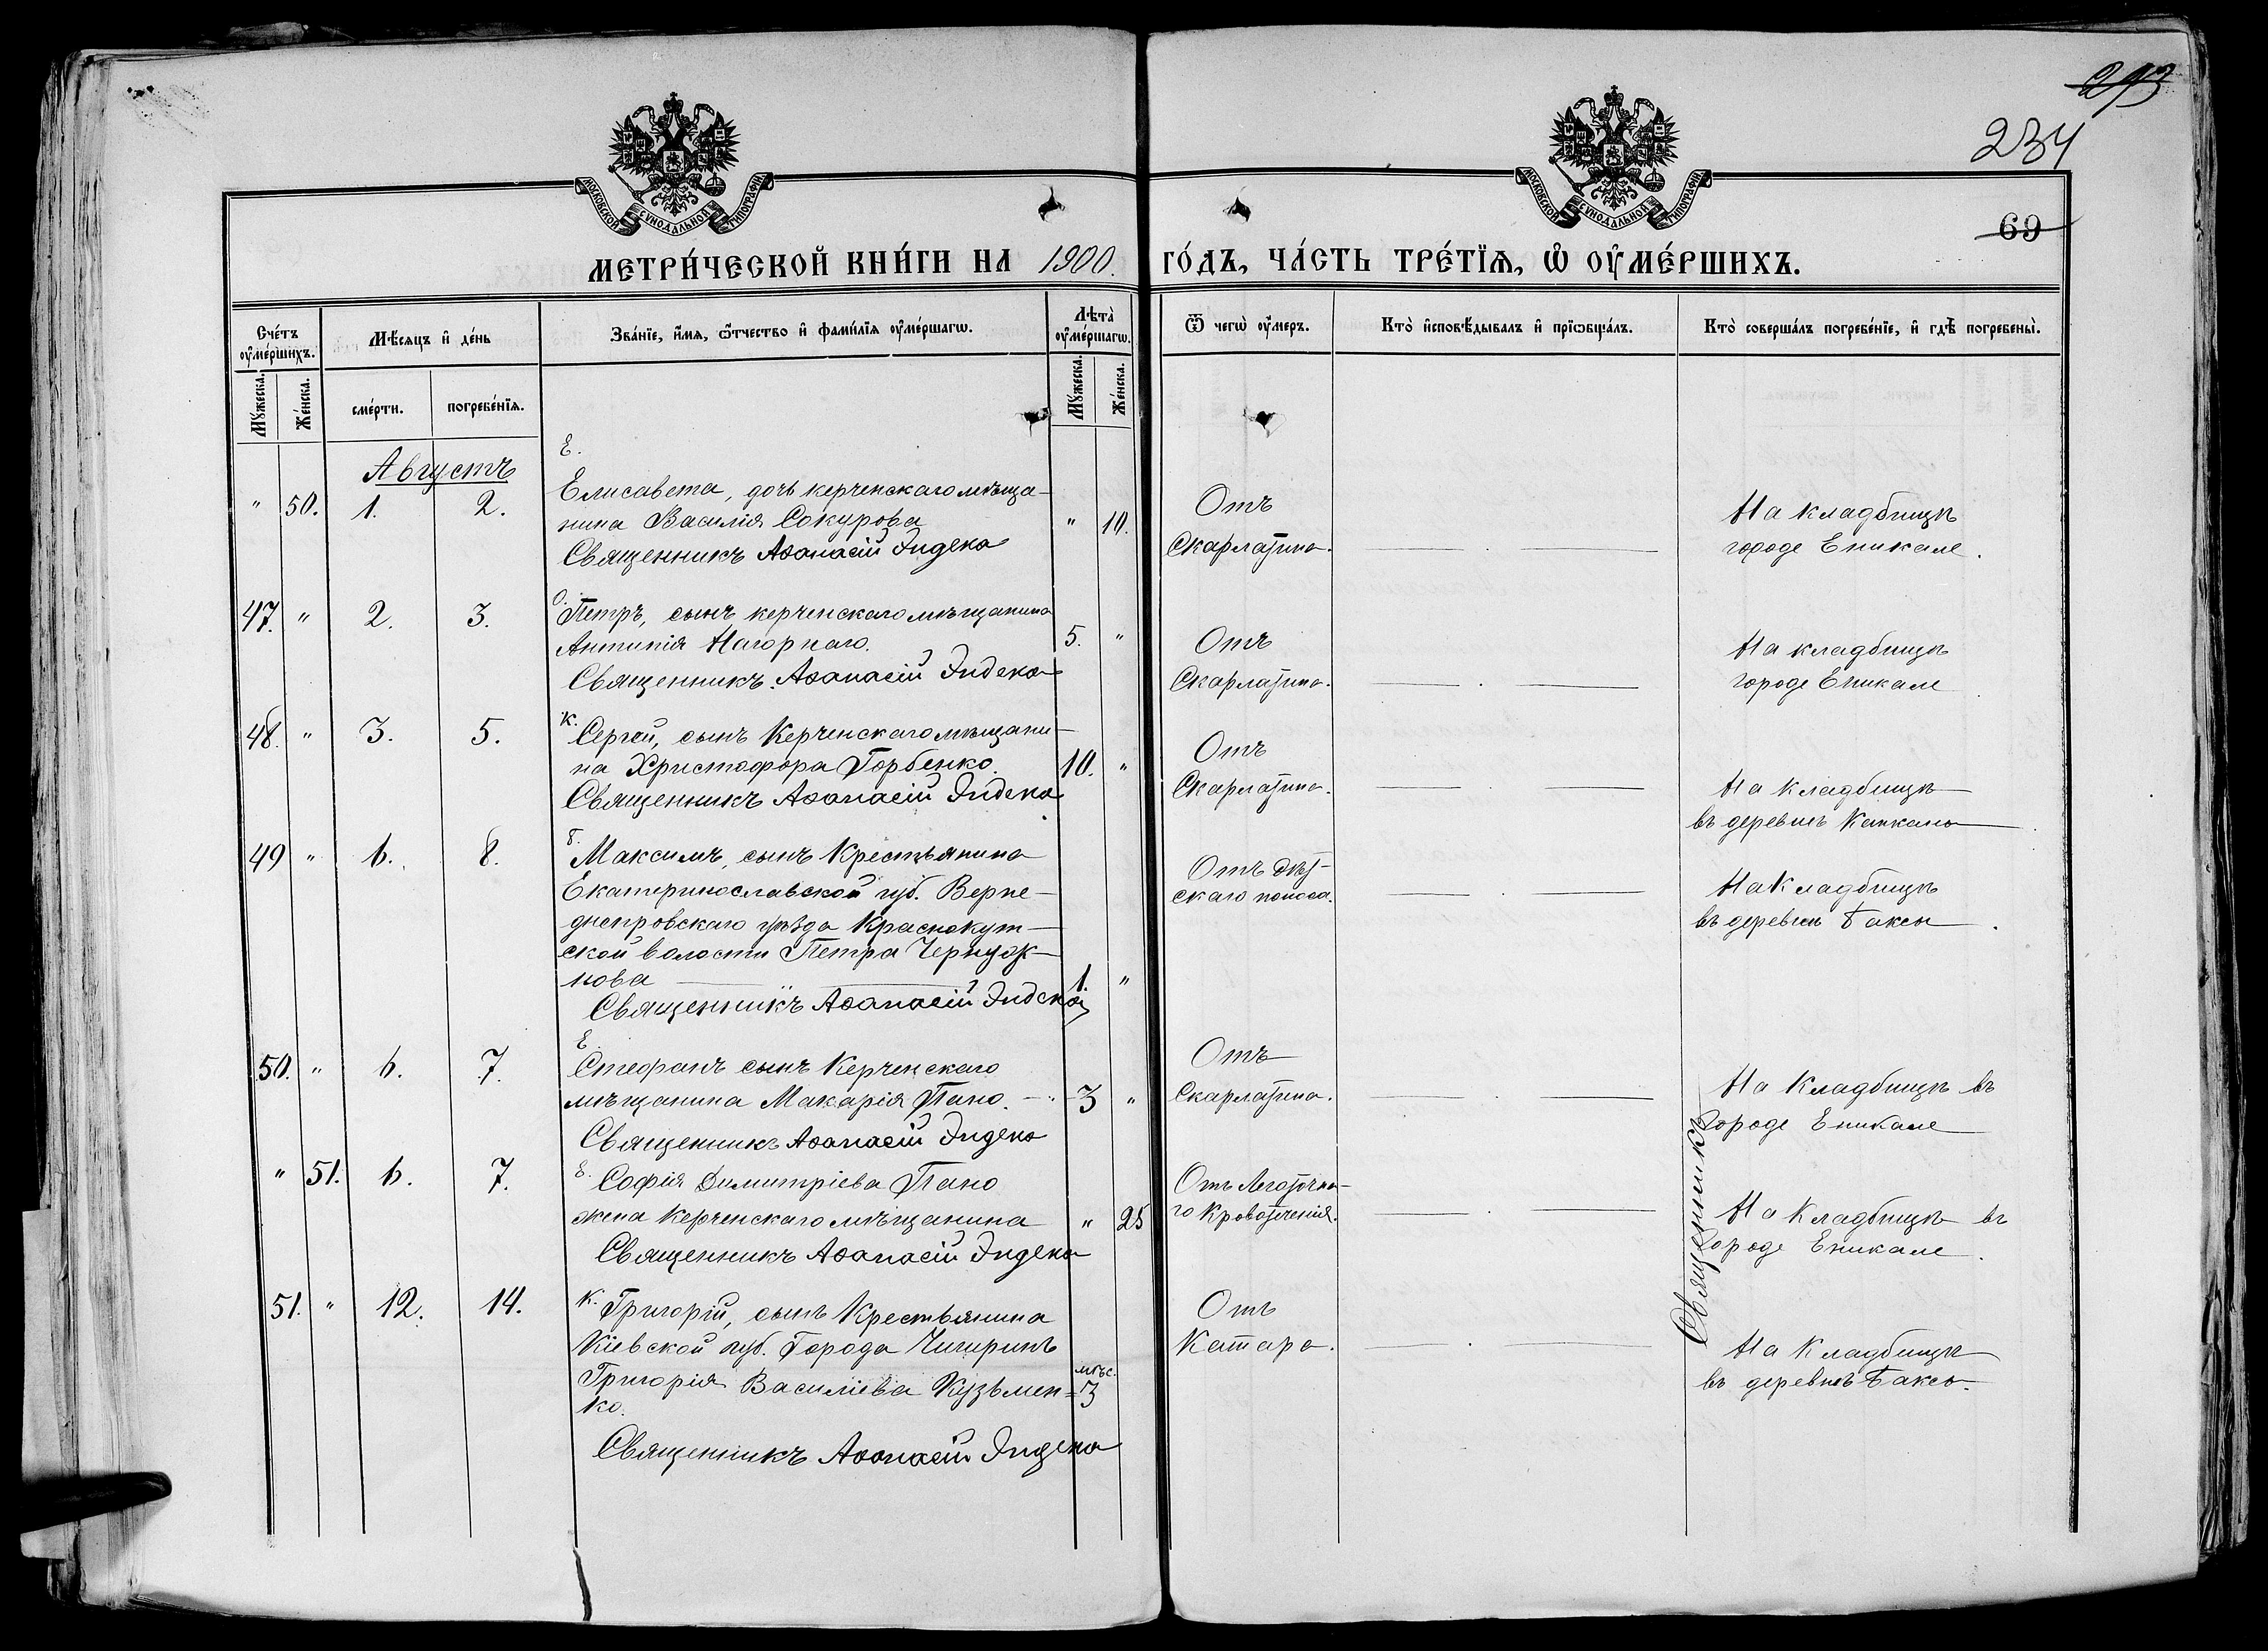 213
234
69
МОСКОВСКОЙ СѴНОДАЛЬНОЙ ТИПОГРАФІИ
МОСКОВСКОЙ СѴНОДАЛЬНОЙ ТИПОГРАФІИ
МЕТРИ́ЧЕСКОЙ КНИ́ГИ НА 1900. ГО́ДЪ, ЧА́СТЬ ТРЕ́ТЇѦ, Ѡ҆ ОУ҆МЕ́РШИХЪ.
Сче́тъ оу҆ме́ршихъ.
Мꙋ́жеска.
Же́нска.
Мѣ́сѧцъ и҆ де́нь
сме́рти.
погребе́нїѧ.
Зва́нїе, и҆́мѧ, ѻ҆́тчество и҆ фами́лїѧ оу҆ме́ршагѡ.
Лѣта̀ оу҆ме́ршагѡ.
Мꙋ́жеска.
Же́нска.
Ѿ чегѡ̀ оу҆́меръ.
Кто̀ и҆сповѣ́дывалъ и҆ прїѡбща́лъ.
Кто̀ соверша́лъ погребе́нїе, и҆ гдѣ̀ погребены̀.
Августъ
Е.
" 50. 1. 2. Елисавета, дочь керченскаго мѣща-
нина Василія Сокурова " 10.
Священникъ Аѳанасій Эндека
Отъ
Скарлатина.
На кладбищѣ
городе Еникале.
47. " 2. 3. Петръ, сынъ керченскаго мѣщанина
Антипія Нагорнаго. 5. "
Священникъ Аѳанасій Эндека
Отъ
Скарлатина.
На кладбищѣ
городе Еникале
К.
48. " 3. 5. Сергей, сынъ Керченскаго мѣщани-
на Христофора Горбенко. 10. "
Священникъ Аѳанасій Эндека
Отъ
Скарлатина.
На кладбищѣ
въ деревнѣ Капканы
Б.
49 " 6. 8. Максимъ, сынъ Крестьянина
Екатеринославской губ. Верне-
днепровскаго уѣзда Краснокут-
ской волости Петра
нова 1. "
Священникъ Аѳанасій Эндека
Отъ Дѣт-
скаго поноса.
На Кладбищѣ
въ деревнѣ Баксы
Е
50. " 6. 7. Стефанъ сынъ Керченскаго
мѣщанина Макарія Пано. 3 "
Священникъ Аѳанасій Эндека
Отъ
Скарлатина.
На Кладбищѣ въ
городе Еникале
Е.
" 51. 6. 7. Софія Димитріева Пано
жена Керченскаго мѣщанина " 25
Священникъ Аѳанасій Эндека
Отъ Легочна-
го Кровотеченія.
На Кладбищѣ въ
городе Еникале.
Священникъ
К.
51. " 12. 14. Григорій, сынъ Крестьянина
Кіевской губ. Города Чигиринъ
Григорія Василіева Кузьмен- мѣс. 3
ко.
Священникъ Аѳанасій Эндека
Отъ
Катара.
На Кладбищѣ
въ деревнѣ Баксы.